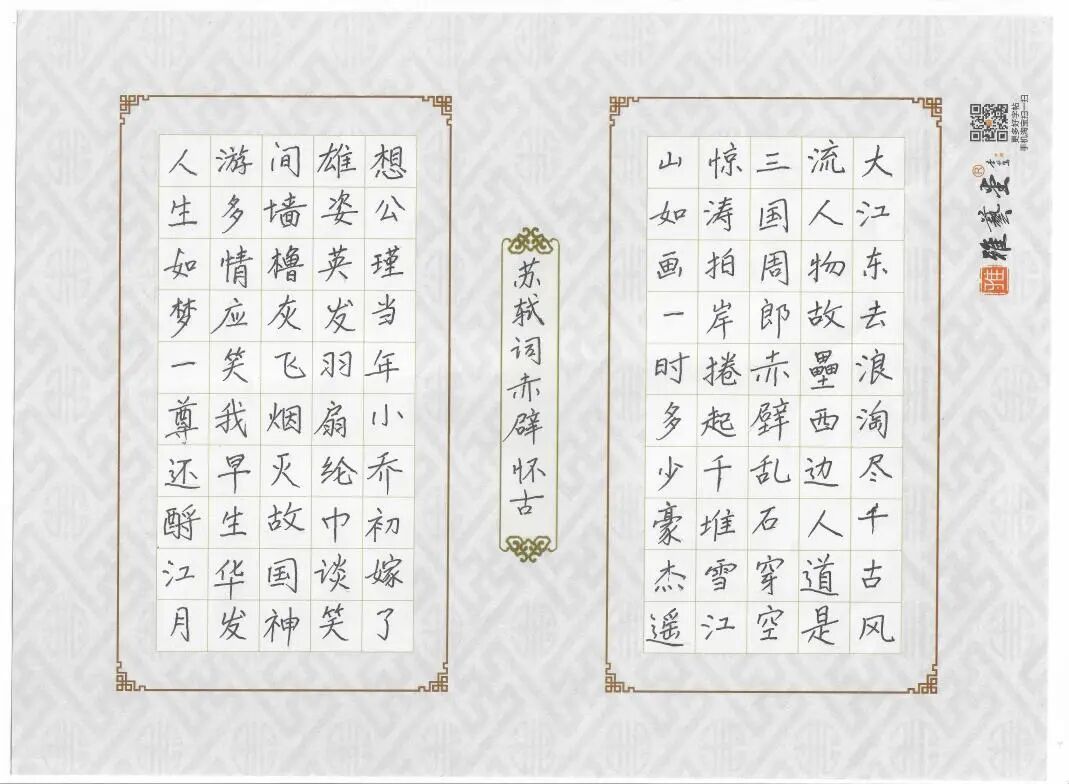 大江东去浪淘尽千古风
流人物故壘西边人道是
三国周郎赤壁乱石穿空
惊涛拍岸捲起千堆雪江
山如画一时多少豪杰遥
苏轼词赤壁怀古
想公瑾当年小乔初嫁了
雄姿英发羽扇纶巾谈笑
间墙橹灰飞烟灭故国神
游多情应笑我早生华发
人生如梦一尊还酹江月
雅藝堂
®
雅
更多好字帖
手机淘宝扫一扫